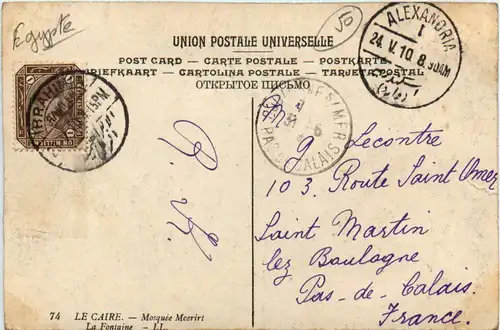 Egypte
50
UNION POSTALE UNIVERSELLE
POST CARD — CARTE POSTALE — POSTKARTE
BRIEFKAART — CARTOLINA POSTALE — TARJETA POSTAL
ОТКРЫТОЕ ПИСЬМО
ALEXANDRIA
I
24. V. 10 8.30AM
PAS CALAIS
Mr g Lecontre
103. Route Saint Omer
Saint Martin
lez Boulogne
Pas-de-Calais.
France.
74 LE CAIRE. — Mosquée Mcerirt
La Fontaine — LL.